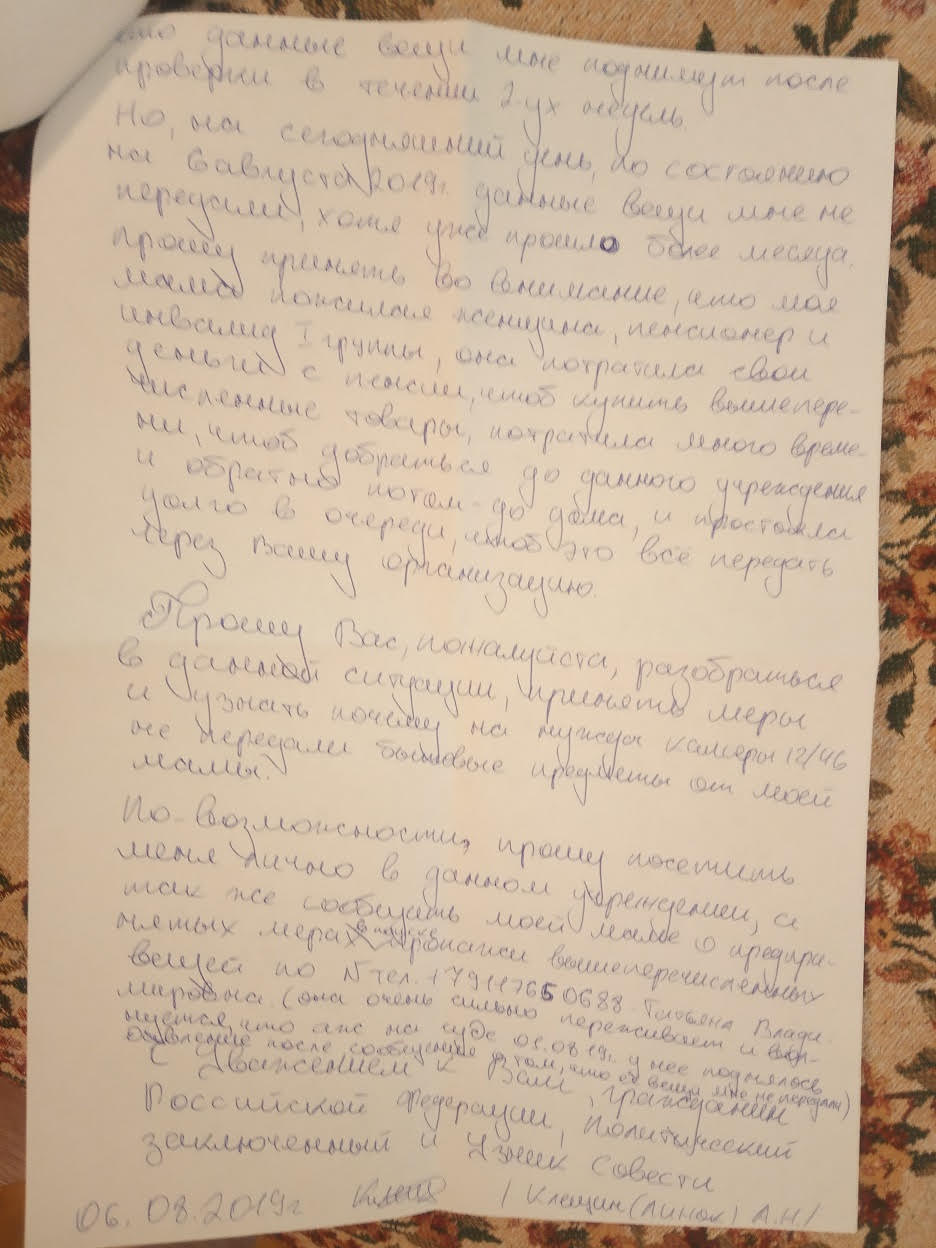 что данные вещи мне поднимут после
проверки в течении 2-ух недель.
Но, на сегодняшний день, по состоянию
на 6 августа 2019г. данные вещи мне не
передали, хотя уже прошло более месяца.
Прошу принять во внимание, что моя
мама пожилая женщина, пенсионер и
инвалид I группы, она потратила свои
деньги с пенсии, чтоб купить вышепере-
численные товары, потратила много време-
ни, чтоб добраться до данного учреждения
и обратно потом до дома, и простояла
долго в очереди, чтоб это всё передать
через Вашу организацию.
Прошу Вас, пожалуйста, разобраться
в данной ситуации, принять меры
и узнать почему на нужды камеры 12/46
не передали бытовые предметы от моей
мамы.
По-возможности, прошу посетить
меня лично в данном учреждении, а
так же сообщить моей маме о предпри-
нятых мерах вышеперечисленных
вещей по N тел. +79117650688 Татьяна Влади-
мировна. (она очень сильно переживает и вол-
нуется, что аж на суде 01.08.19г. у нее поднялось
давление после сообщения о том, что её вещи мне не передали)
С Уважением к Вам, гражданин
Российской Федерации, Политический
заключенный и Узник Совести
06.08.2019г / Клещин (Линок) А.Н /